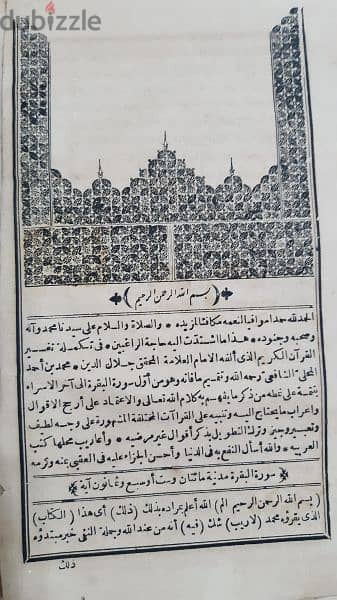 dubizzle
بسم الله الرحمن الرحيم
الحمد لله حمدا موافيا لنعمه مكافئا لمزيده * والصلاة والسلام على سيدنا محمد وآله
وصحبه وجنوده * هذا ما اشتدت اليه حاجة الراغبين * فى تكملة تفسير
القرآن الكريم الذى ألفه الامام العلامة المحقق جلال الدين * محمد بن أحمد
المحلى الشافعى رحمه الله وتتميم مافاته وهو من أول سورة البقرة الى آخر الاسراء
بتتمة على نمطه من ذكر ما يفهم به كلام الله تعالى والاعتماد على أرجح الاقوال
واعراب ما يحتاج اليه وتنبيه على القرآآت المختلفة المشهورة على وجه لطيف
وتعبير وجيز وترك التطويل بذكر أقوال غير مرضيه * وأعاريب محلها كتب
العربيه * والله أسأل النفع به فى الدنيا وأحسن الجزاء عليه فى العقبى بمنه وكرمه
سورة البقرة مدنية مائتان وست أو سبع وثمانون آية
(بسم الله الرحمن الرحيم الم) الله أعلم بمراده بذلك (ذلك) أى هذا (الكتاب)
الذى يقرؤه محمد (لاريب) شك (فيه) أنه من عند الله وجملة النفى خبر مبتدؤه
ذلك